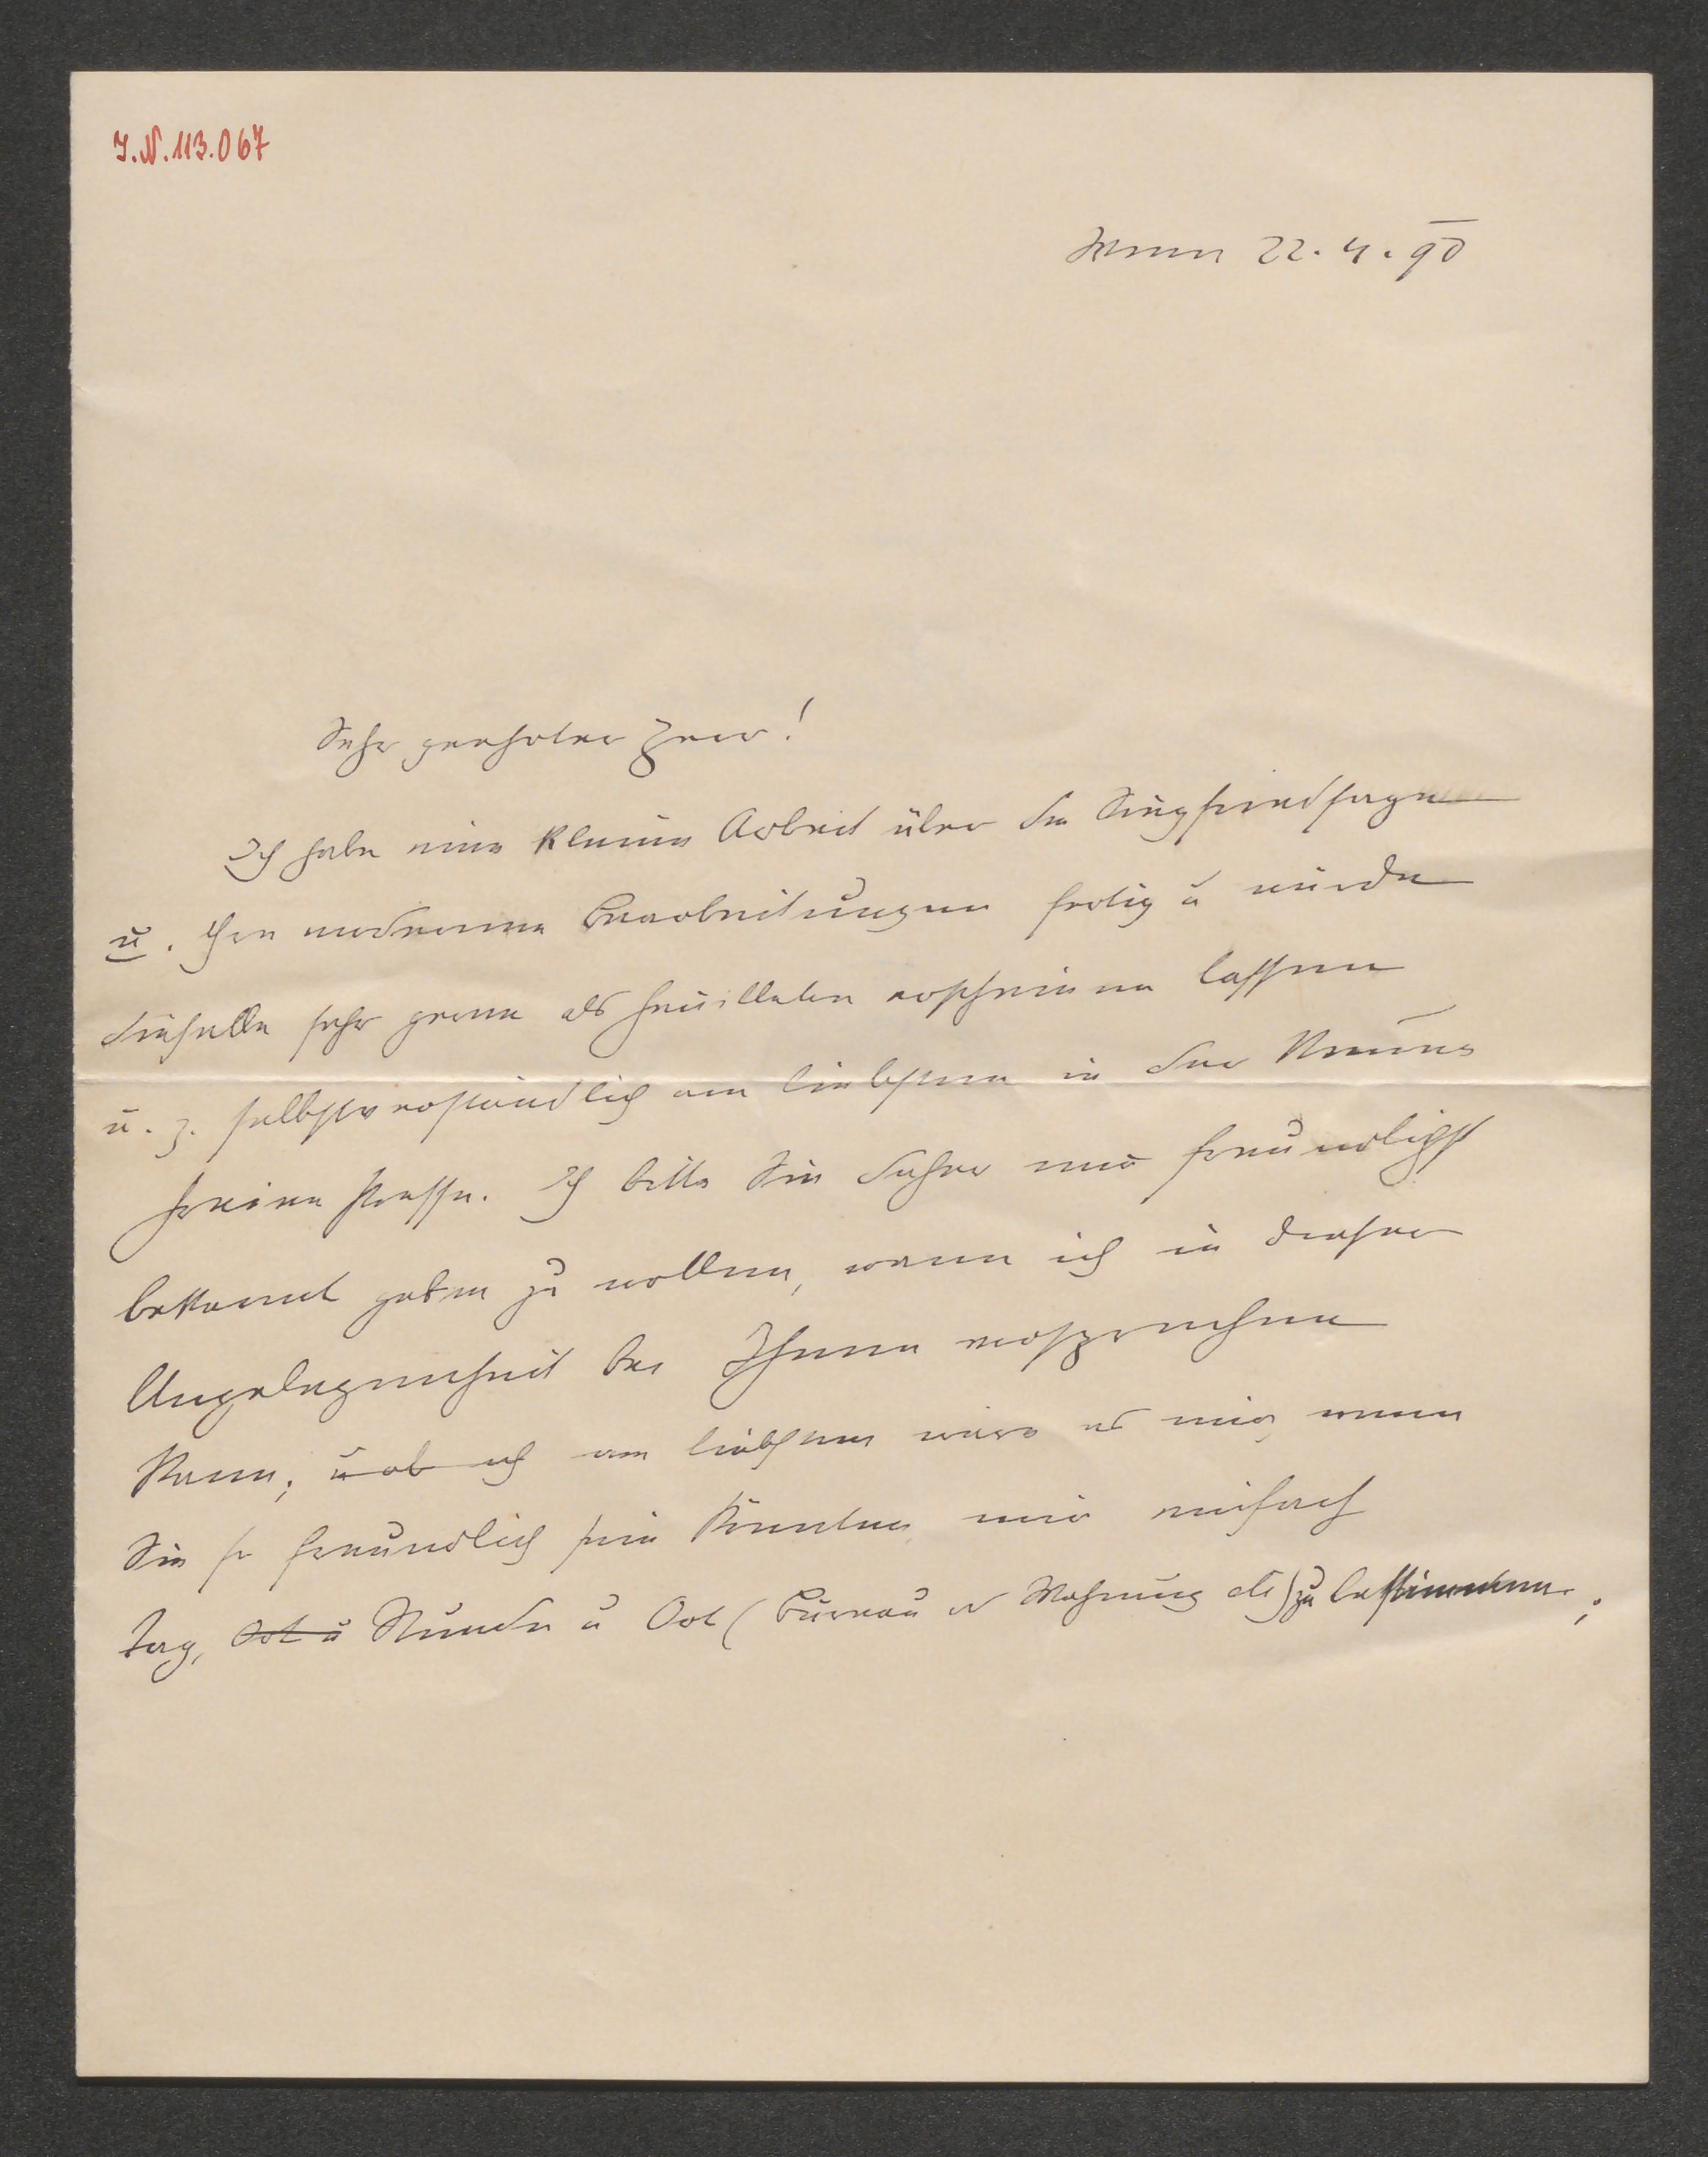 J.N. 113.067
Wien 22.4.90
Sehr geehrter Herr!
Ich habe eine kleine Arbeit über die Siegfriedsage
u. ihre modernen Bearbeitungen fertig u würde
dieselbe sehr gerne als Feuilleton erscheinen lassen
u. z. selbstverständlich am liebsten in der Neuen
freien Presse. Ich bitte Sie daher mir freundlichst
bekannt geben zu wollen, wann ich in dieser
Angelegenheit bei Ihnen vorsprechen
kann; u ob ich am liebsten wäre es mir, wenn
Sie so freundlich sein könnten mir einfach
Tag, Ort u Stunde u Ort (Bureau od Wohnung etc) zu bestimmen;